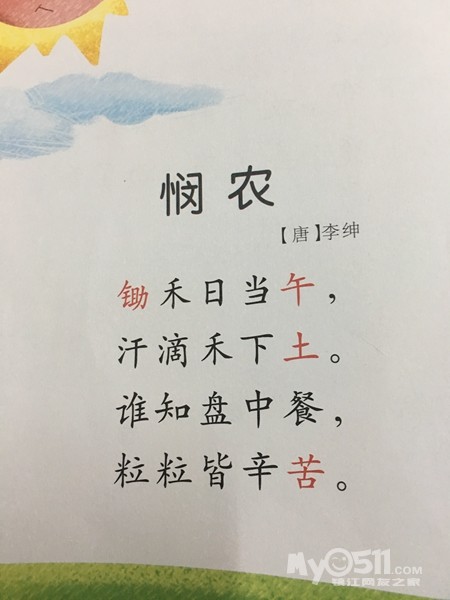 悯农
【唐】李绅
锄禾日当午，
汗滴禾下土。
谁知盘中餐，
粒粒皆辛苦。
My0511.COM
镇江网友之家